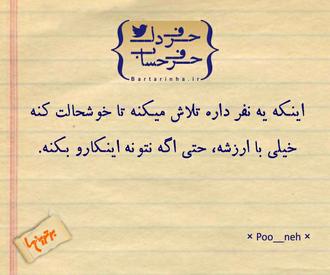 حرف دل
حرف حساب
Bartarinha.ir
اینکه یه نفر داره تلاش میکنه تا خوشحالت کنه
خیلی با ارزشه، حتی اگه نتونه اینکارو بکنه.
× Poo__neh ×
برترینها